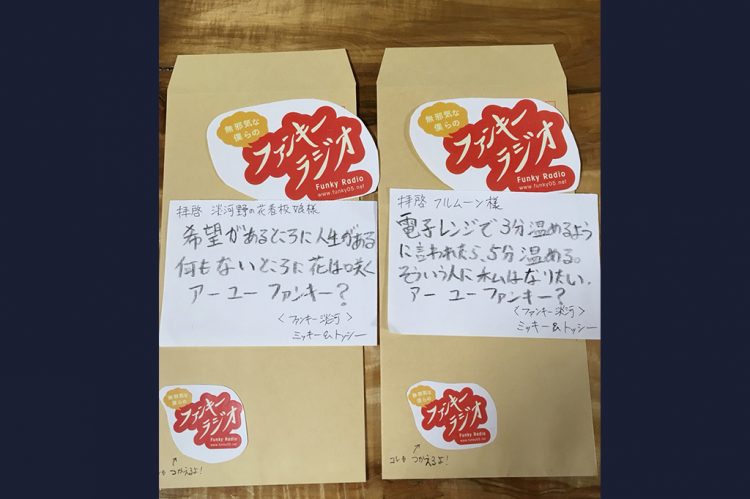 無邪気な
僕らの
ファンキー
ラジオ
Funky Radio
www.funky05.net
拝啓 淡河野の花看板娘様
希望があるところに人生がある
何もないところに花は咲く
アー ユー ファンキー?
<ファンキー淡河>
ミッキー&トッシー
無邪気な
僕らの
ファンキー
ラジオ
Funky Radio
www.funky05.net
コレも つかえるよ!
無邪気な
僕らの
ファンキー
ラジオ
Funky Radio
www.funky05.net
拝啓 フルムーン様
電子レンジで3分温めるよう
に言われたら、5分温める。
そういう人にホムはなりたい。
アー ユー ファンキー?
<ファンキー淡河>
ミッキー&トッシー
無邪気な
僕らの
ファンキー
ラジオ
Funky Radio
www.funky05.net
コレも つかえるよ!